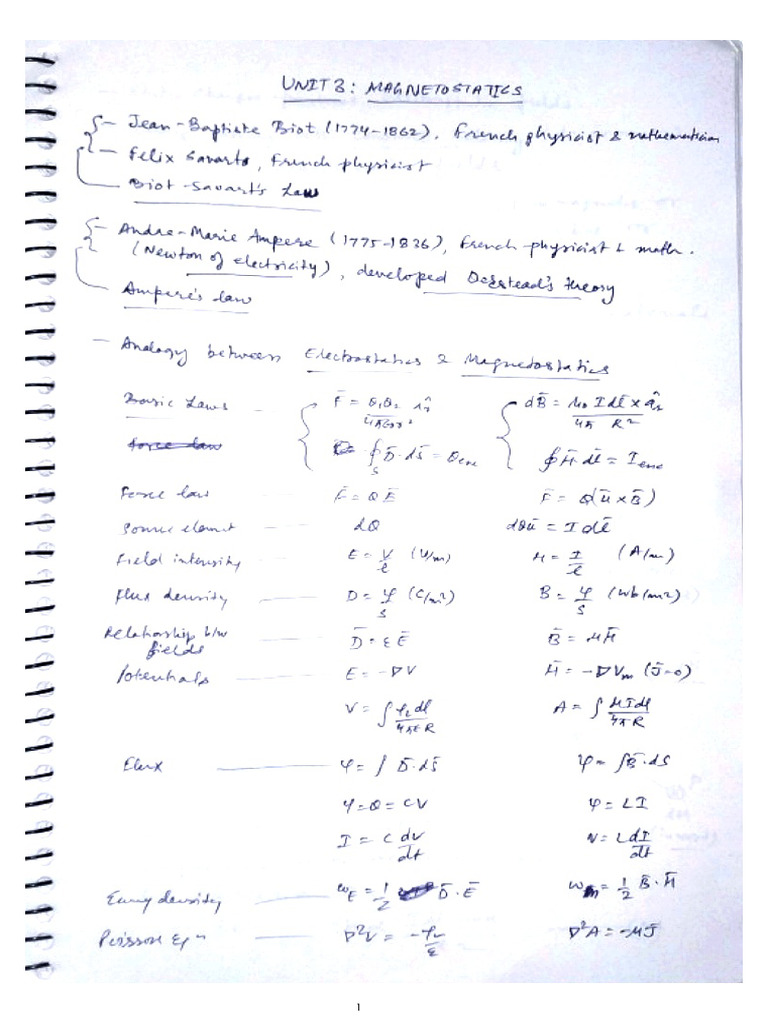 UNIT 3: MAGNETOSTATICS
- Jean-Baptiste Biot (1774-1862), French physicist & mathematician
- Felix Savarto, French physicist
Biot-Savart's Law
- Andre-Marie Ampere (1775-1836), French-physicist & math.
(Newton of electricity), developed Oerstead's theory
Ampere's law
- Analogy between Electrostatics & Magnetostatics
Basic Laws — F̄ = Q₁Q₂/4πε₀r² âᵣ dB̄ = μ₀ I dl̄ × âᵣ/4π R²
force law ∮ₛ D̄·dS̄ = Qenc ∮ H̄ dl̄ = Ienc
Force law — F̄ = Q Ē F̄ = Q(ū × B̄)
Source element — dQ dQū = I dl̄
Field intensity — E = V/l (V/m) H = I/l (A/m)
Flux density — D = ψ/S (C/m²) B = ψ/S (Wb/m2)
Relationship b/w fields — D̄ = ε Ē B̄ = μH̄
Potentials — E = -∇V H̄ = -∇Vm (J̄=0)
V = ∫ ρL dl/4πεR A = ∫ μIdl/4πR
Flux — ψ = ∫ D̄·dS̄ ψ = ∫B̄·dS
ψ = Q = CV ψ = LI
I = C dV/dt V = L dI/dt
Energy density — wE = 1/2 D̄·Ē wm = 1/2 B̄·H̄
Poisson Eqⁿ — ∇²V = -ρv/ε ∇²A = -μJ̄
1